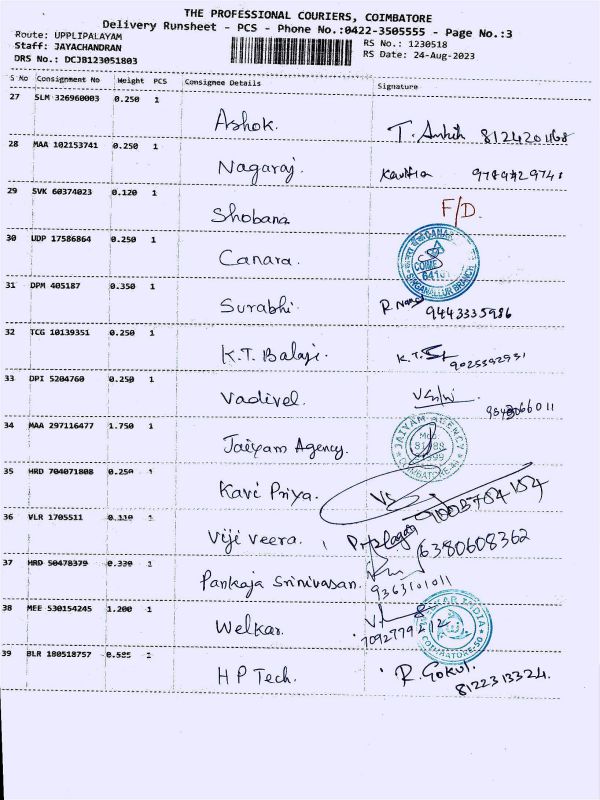 THE PROFESSIONAL COURIERS, COIMBATORE
Delivery Runsheet - PCS - Phone No.:0422-3505555 - Page No.:3
Route: UPPLIPALAYAM
RS No.: 1230518
Staff: JAYACHANDRAN
RS Date: 24-Aug-2023
DRS No.: DCJB123051803
S No Consignment No Weight PCS Consignee Details Signature
27 SLM 326960003 0.250 1
Ashok. 8124201168
28 MAA 102153741 0.250 1
Nagaraj.
29 SVK 60374023 0.120 1
Shobana F/D.
30 UDP 17586864 0.250 1
Canara.
SINGANALLUR BRANCH
31 DPM 405187 0.350 1
Surabhi. 9443335986
32 TCG 10139351 0.250 1
K.T. Balaji. K.T.
33 DPI 5204760 0.250 1
Vadivel.
34 MAA 297116477 1.750 1
Jaiyam Agency. JAIYAM AGENCY
35 HRD 704071808 0.250 1
Kavi Priya. VS
36 VLR 1705511 0.110 1
Viji Veera. 6380608362
37 HRD 50478379 0.330 1
Pankaja Srinivasan. 9363101011
38 MEE 530154245 1.200 1
Welkar. 7092779212
39 BLR 180518757 0.525 1
H P Tech. R. Gokul. 8122313324.